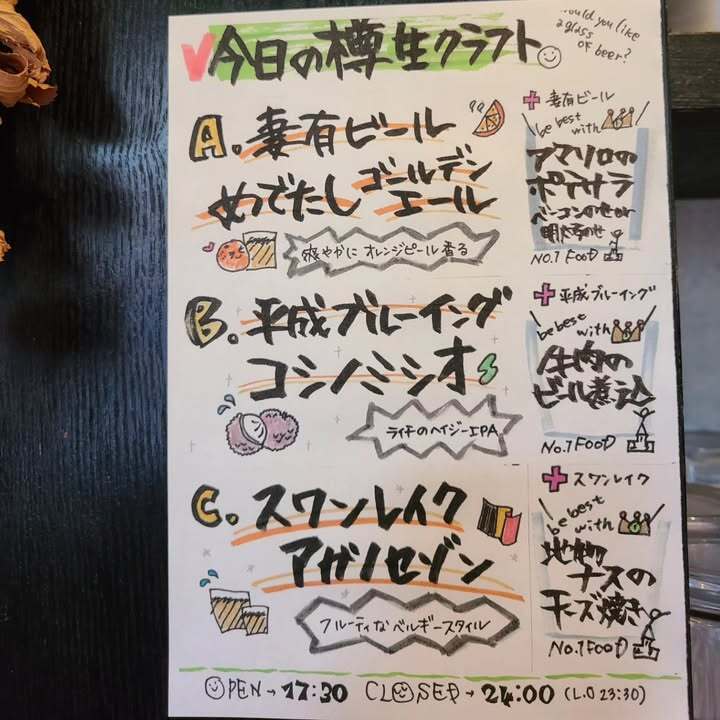 今日の樽生クラフト
would you like
a glass
of beer?
A. 妻有ビール
めでたし ゴールデン
エール
爽やかに オレンジピール香る
+ 妻有ビール
be best
with
アマソロの
ポテサラ
ベーコンのせ
明太のせ
NO.1 FOOD
B. 平成ブルーイング
コシノミシオ
ライチのヘイジーIPA
+ 平成ブルーイング
be best
with
牛肉の
ビール煮込
NO.1 FOOD
C. スワンレイク
アガノセゾン
フルーティなベルギースタイル
+ スワンレイク
be best
with
地物
ナスの
チーズ焼き
NO.1 FOOD
OPEN→17:30 CLOSED→24:00 (L.O 23:30)